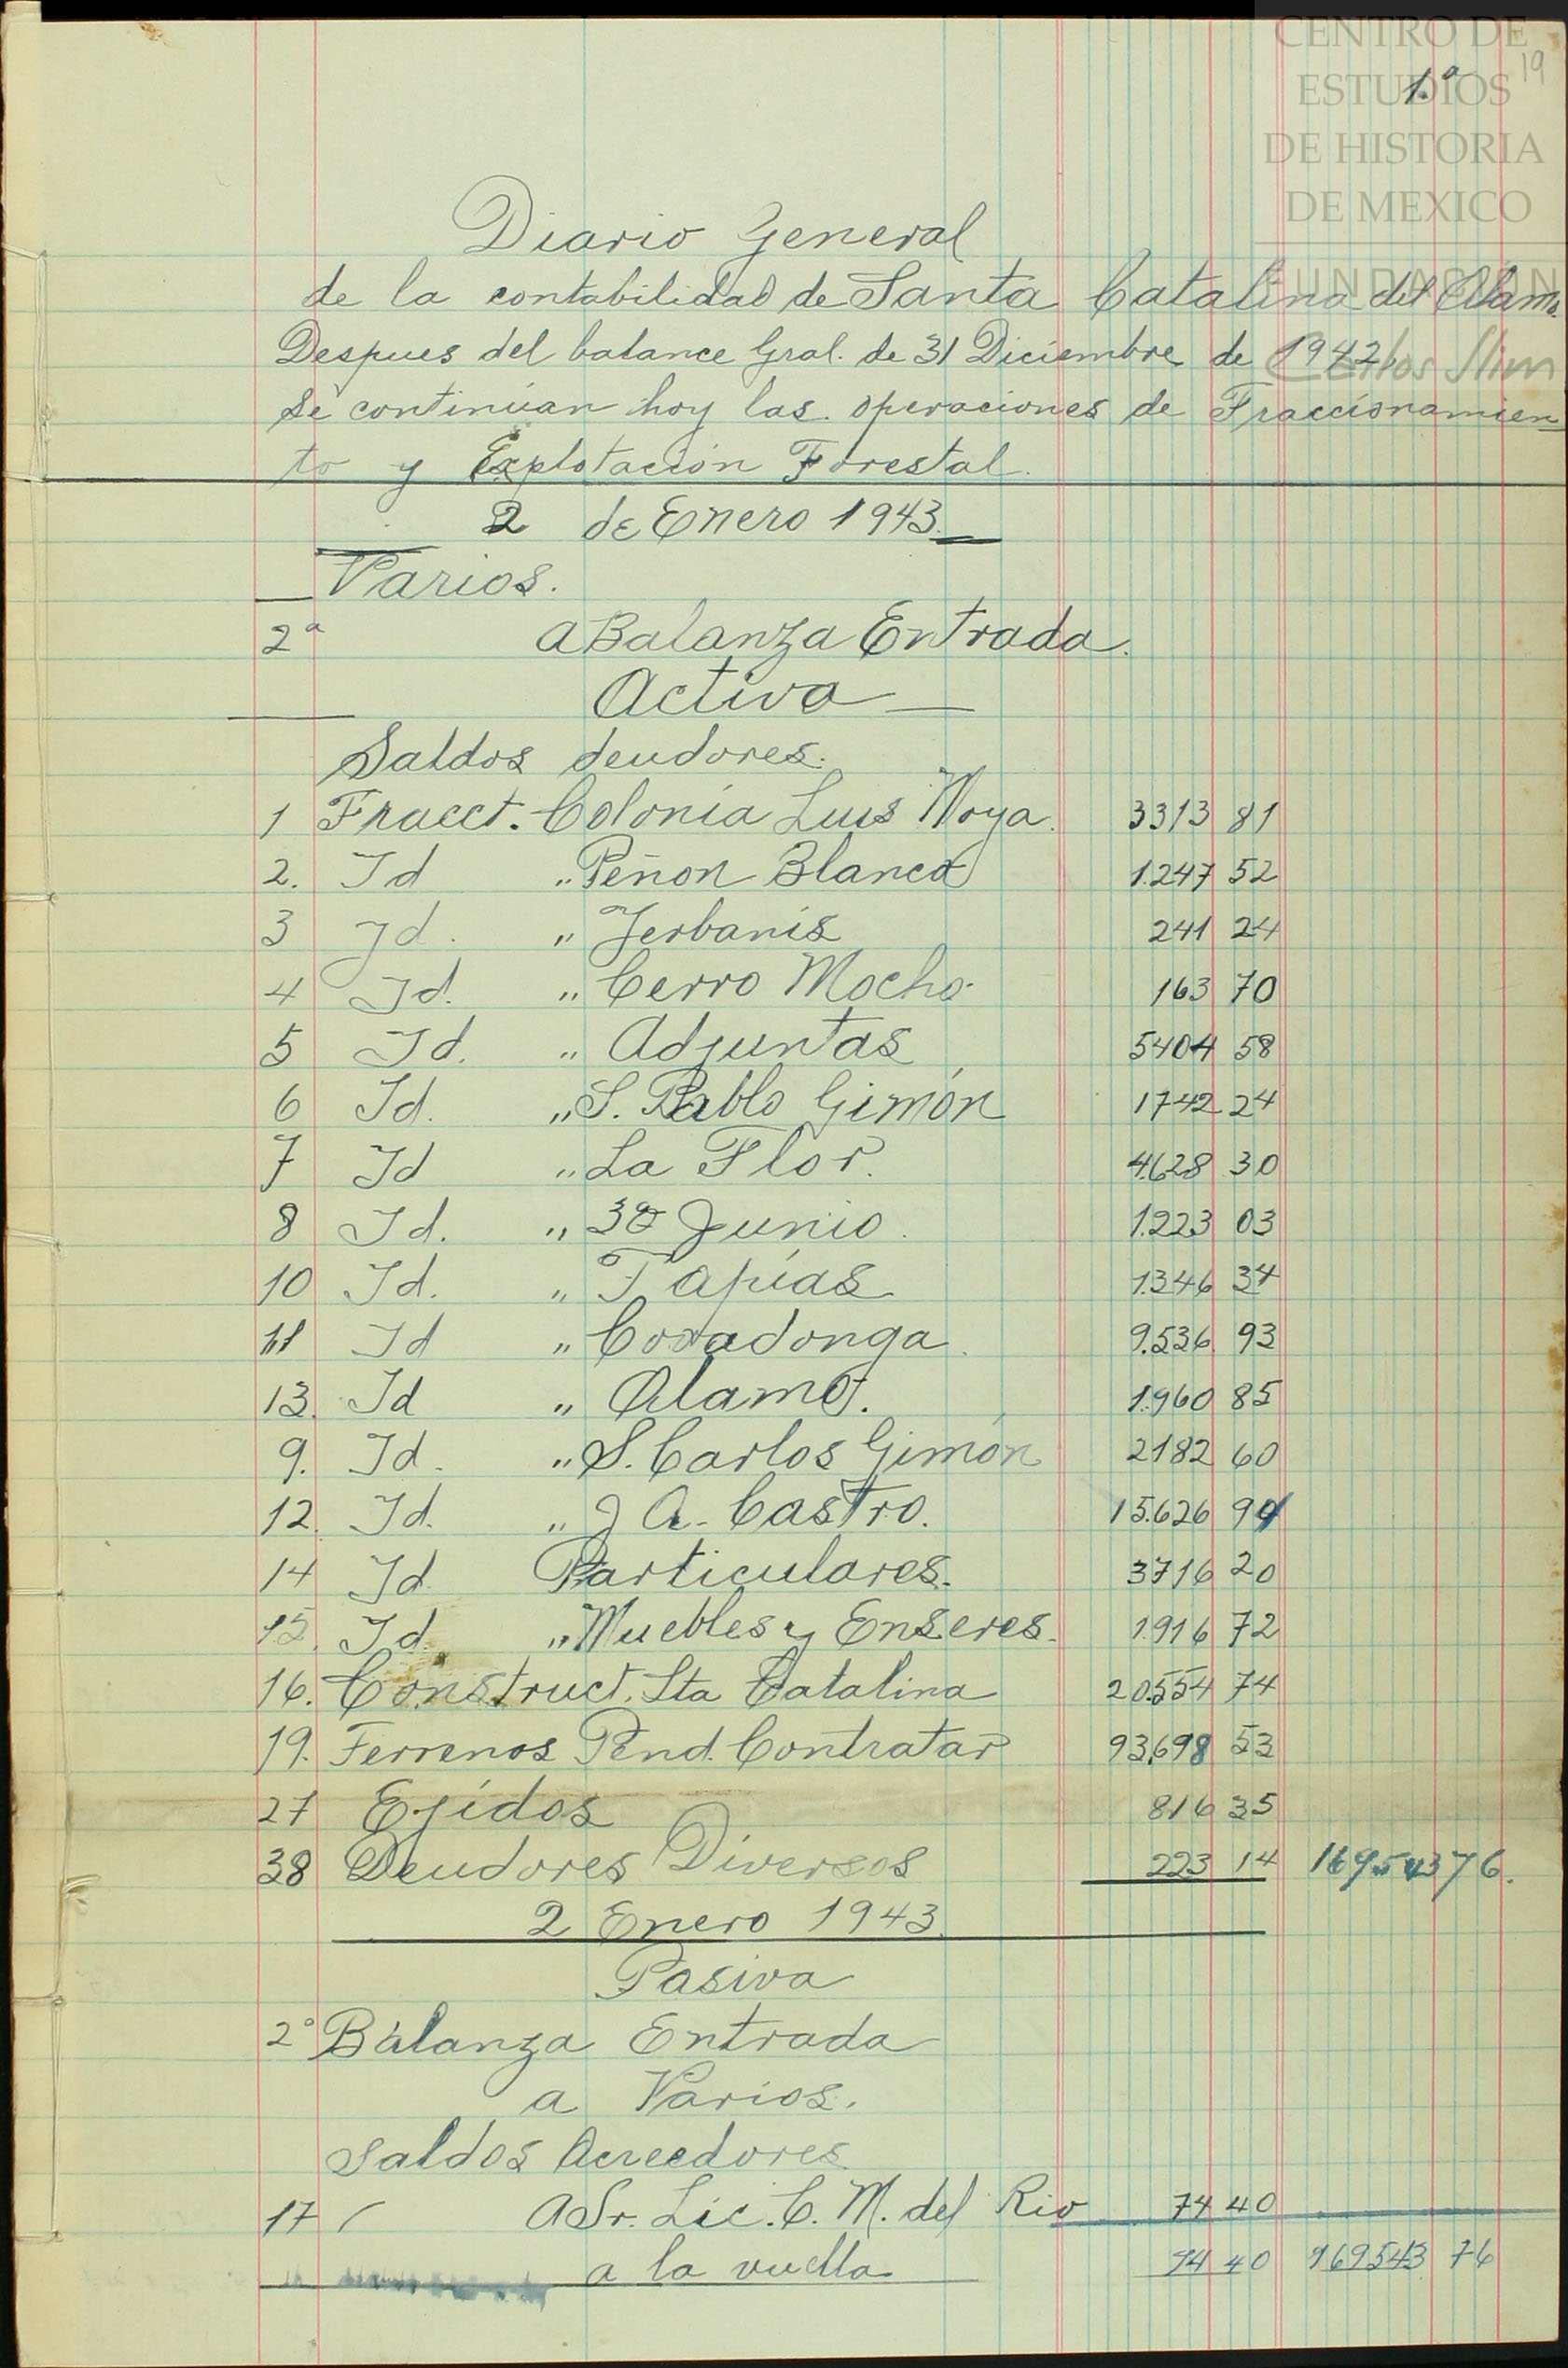 CENTRO DE
ESTUDIOS
DE HISTORIA
DE MEXICO
FUNDACIÓN
Carlos Slim
19
1.a
Diario General
de la contabilidad de Santa Catalina del Alamo.
Despues del balance Gral. de 31 Diciembre de 1942,
se continúan hoy las operaciones de Fraccionamien
to y Explotación Forestal.
2 de Enero 1943.
Varios.
2a a Balanza Entrada.
Activa
Saldos deudores.
1 Fracct. Colonia Luis Moya. 3313 81
2. Id " Peñon Blanco 1.247 52
3 Id. " Yerbanis 241 24
4 Id. " Cerro Mocho 163 70
5 Id. " Adjuntas 5404 58
6 Id. " S. Pablo Gimón 1742 24
7 Id " La Flor. 4.628 30
8 Id. " 30 Junio. 1.223 03
10 Id. " Tapias 1.346 34
11 Id " Covadonga. 9.536 93
13. Id " Alamo. 1.960 85
9. Id. " S. Carlos Gimón 2182 60
12. Id. " J A. Castro. 15.626 94
14 Id. Particulares. 3716 20
15. Id. " Muebles y Enseres. 1.916 72
16. Construct. Sta Catalina 20.554 74
19. Terrenos Pend. Contratar 93,698 53
27 Ejidos 816 35
38 Deudores Diversos 223 14 169543 76.
2 Enero 1943.
Pasiva
2o Balanza Entrada
a Varios.
Saldos Acreedores
17 / a Sr. Lic. C. M. del Rio 74 40
a la vuelta 74 40 169543 76